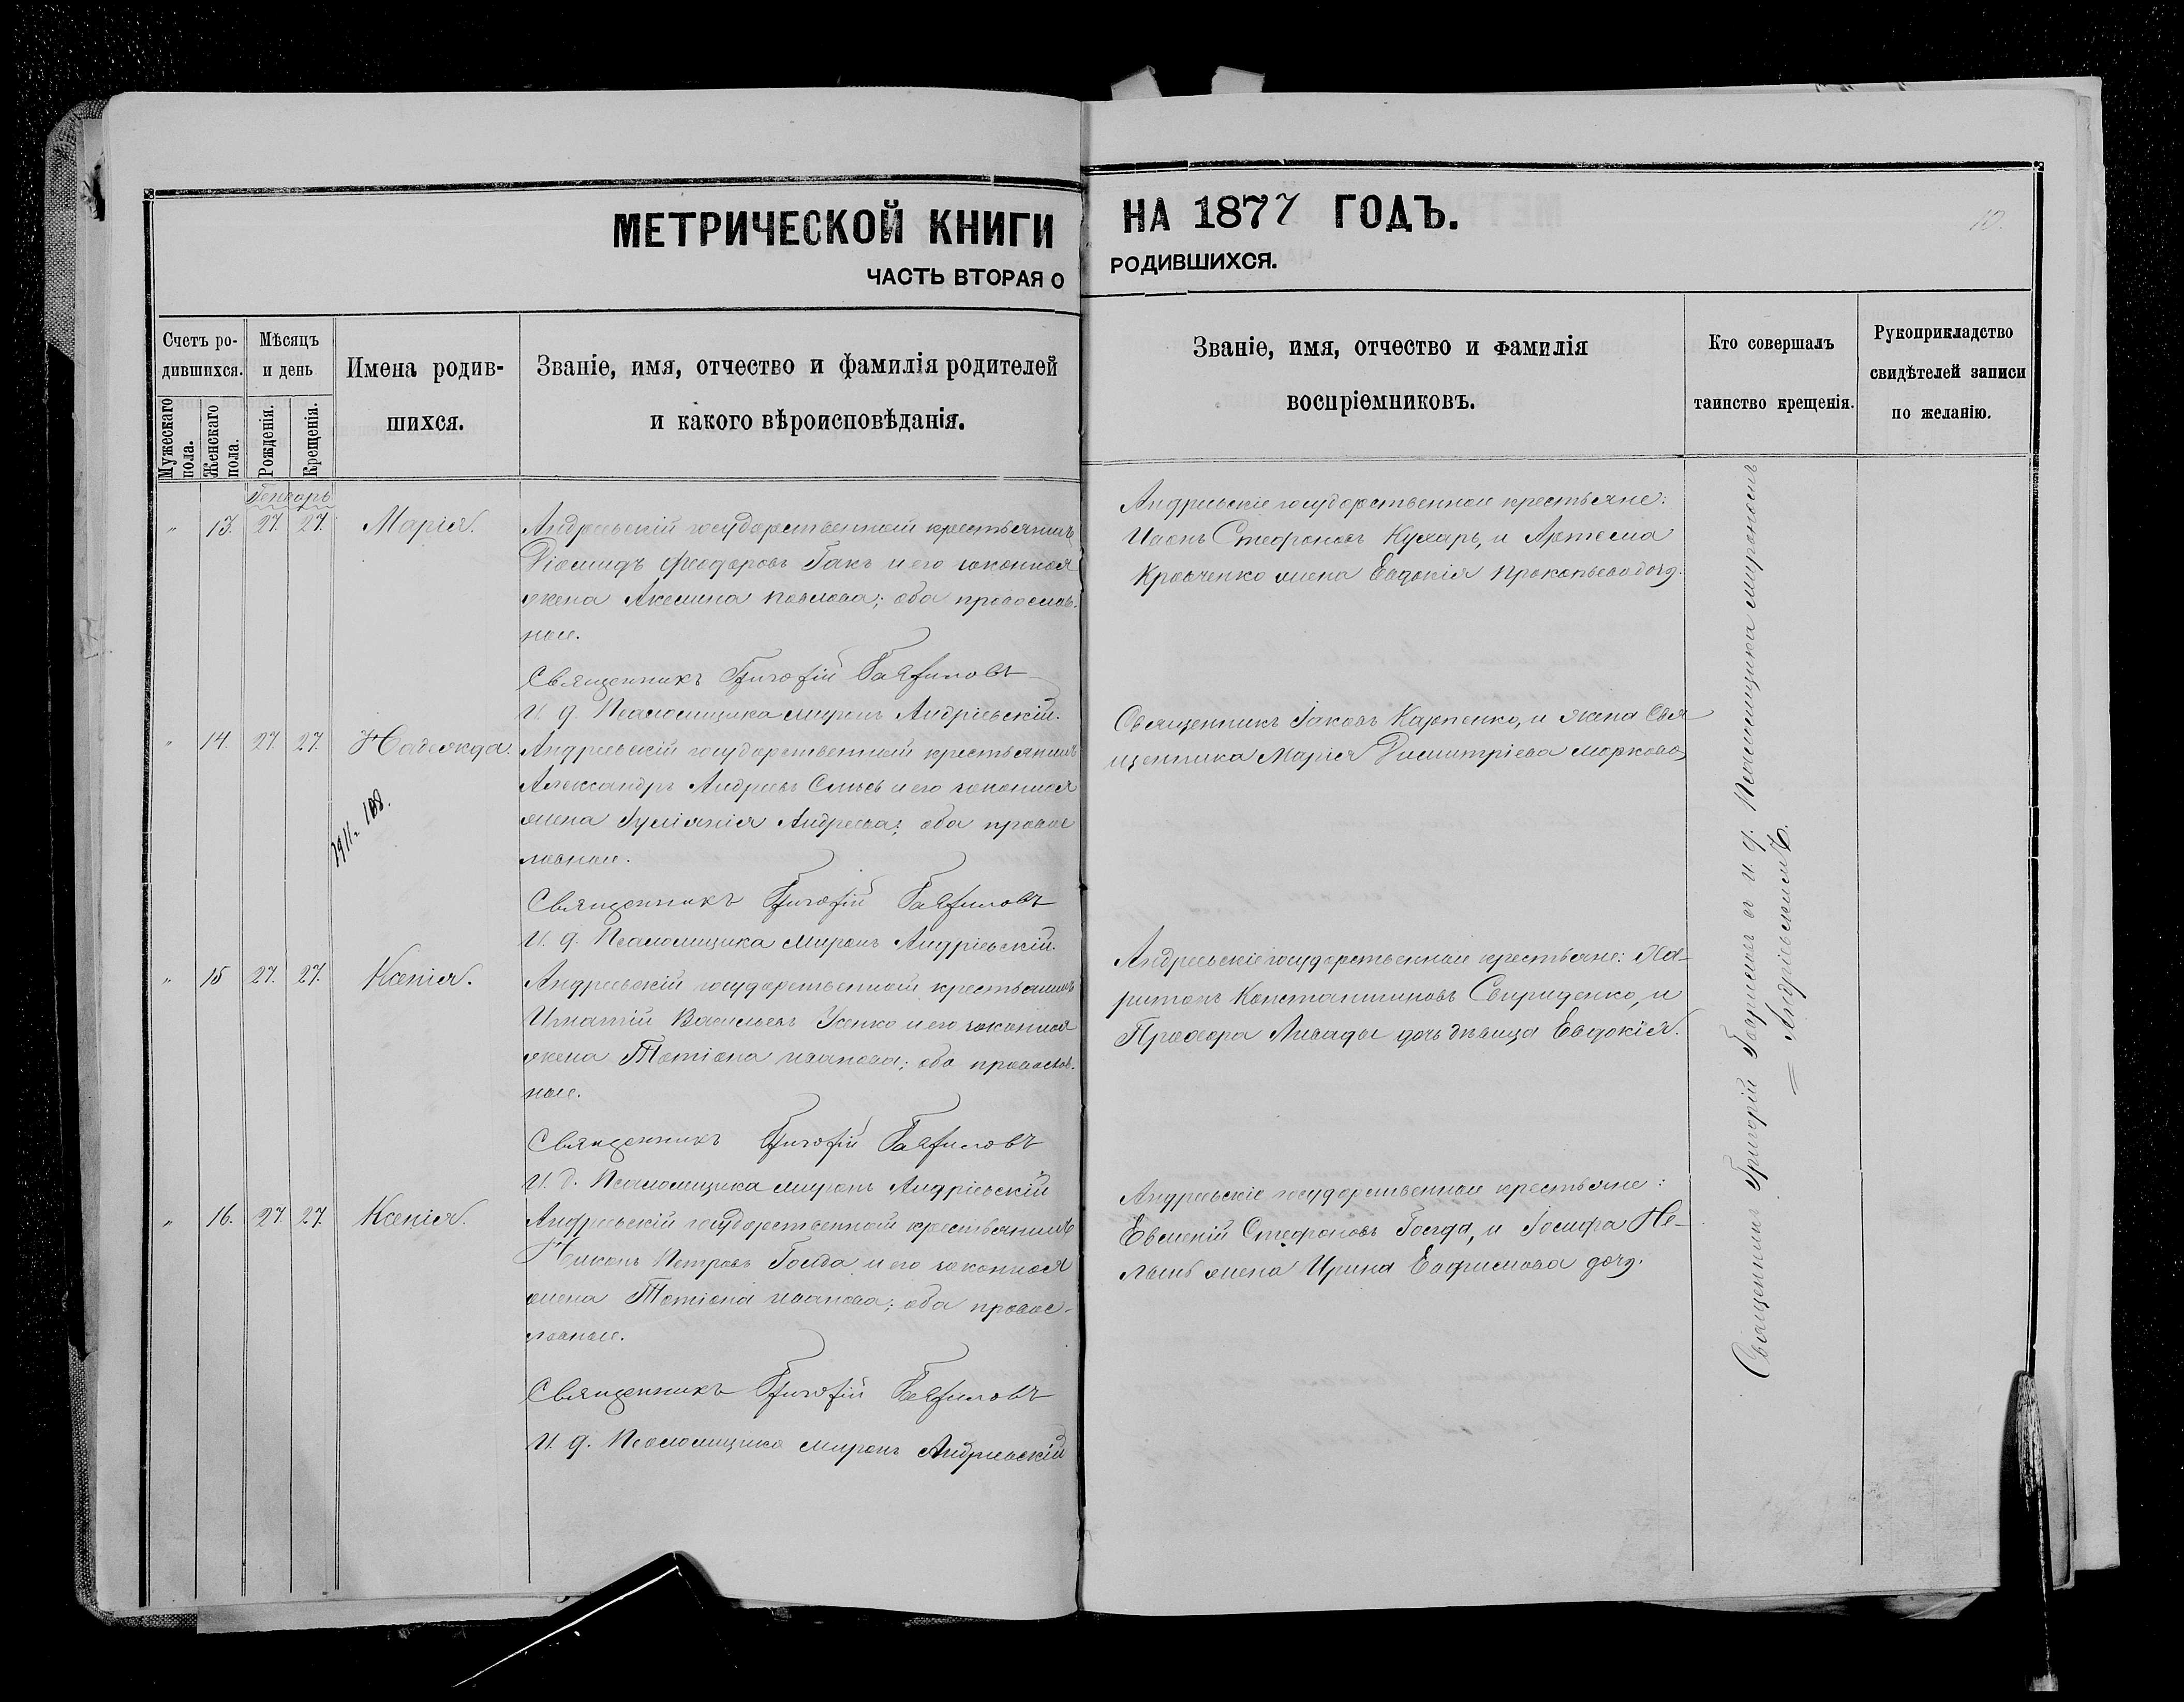 МЕТРИЧЕСКОЙ КНИГИ НА 1877 ГОДЪ.
ЧАСТЬ ВТОРАЯ О РОДИВШИХСЯ.
12.
Счетъ ро-
дившихся.
Мужескаго
пола.
Женскаго
пола.
Мѣсяцъ
и день
Рожденія.
Крещенія.
Имена родив-
шихся.
Званіе, имя, отчество и фамилія родителей
и какого вѣроисповѣданія.
Званіе, имя, отчество и фамилія
воспріемниковъ.
Кто совершалъ
таинство крещенія.
Рукоприкладство
свидѣтелей записи
по желанію.
Генварь
" 13. 27. 27. Марія.
Андреевскій государственный крестьянинъ
Діомидъ Феодоровъ Гакъ и его законная
жена Акилина Павлова; оба православ-
ные.
Священникъ Григорій Гавриловъ
И. д. Псаломщика Миронъ Андріевскій.
Андреевскіе государственные крестьяне:
Иаонъ Стефановъ Кухарь, и Артема
Кравченко жена Евдокія Прокопьева дочь.
" 14. 27. 27. Надежда.
1911. 108.
Андреевскій государственный крестьянинъ
Александръ Андреевъ и его законная
жена Іуліанія Андреева; оба правос
лавные.
Священникъ Григорій Гавриловъ
И. д. Псаломщика Миронъ Андріевскій.
Священникъ Іаковъ Карпенко, и жена Свя
щенника Марія Димитріева Маркова,
" 15 27. 27. Ксенія.
Андреевскій государственный крестьянинъ
Игнатій Васильевъ Усенко и его законная
жена Татіана Иванова; оба православ.
ные.
Священникъ Григорій Гавриловъ
И. д. Псаломщика Миронъ Андріевскій
Андреевскіе государственные крестьяне: Ха-
ритонъ Константиновъ Свириденко, и
Прохора Ливады дочь дѣвица Евдокія.
" 16. 27. 27. Ксенія.
Андреевскій государственный крестьянинъ
Никонъ Петровъ Гоида и его законная
жена Татіана Иванова; оба правос-
лавные.
Священникъ Григорій Гавриловъ
И. д. Псаломщика Миронъ Андриевскій
Андреевскіе государственные крестьяне:
Евменій Стефановъ Гоида, и Іосифа Не-
жена Ирина Евфимова дочь.
Священникъ Григорій Гавриловъ съ и. д. Псаломщика Мирономъ
= Андріевскимъ.